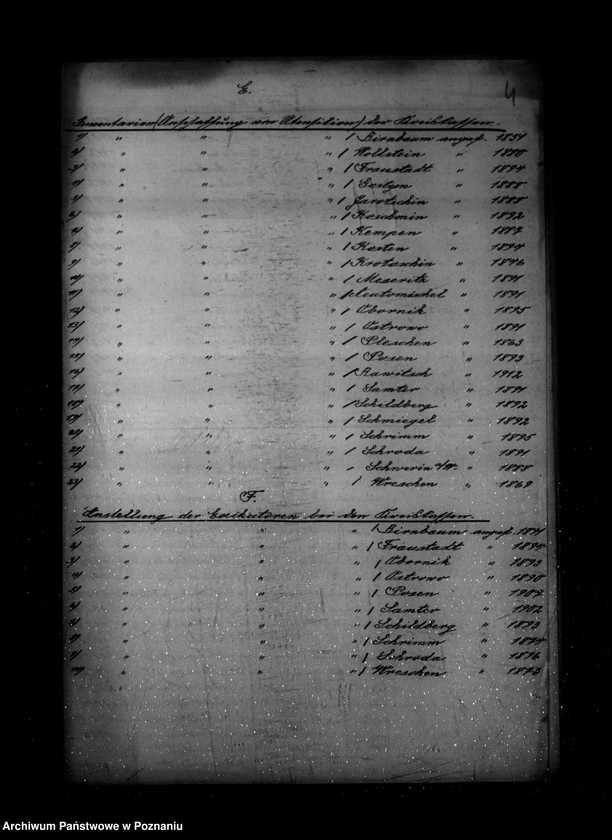 E.
4
Inventarien (Anschaffung von Utensilien) der Kreiskassen.
1/ " " " / Birnbaum angef. 1854
2/ " " " / Wollstein " 1888
3/ " " " / Fraustadt " 1894
4/ " " " / Gostyn " 1888
5/ " " " / Jarotschin " 1888
6/ " " " / Koschmin " 1892
7/ " " " / Kempen " 1887
8/ " " " / Kosten " 1894
9/ " " " / Krotoschin " 1846
10/ " " " / Meseritz " 1891
11/ " " " / Neutomischel " 1891
12/ " " " / Obornik " 1895
13/ " " " / Ostrowo " 1891
14/ " " " / Pleschen " 1863
15/ " " " / Posen " 1893
16/ " " " / Rawitsch " 1912
17/ " " " / Samter " 1891
18/ " " " / Schildberg " 1892
19/ " " " / Schmiegel " 1892
20/ " " " / Schrimm " 1895
21/ " " " / Schroda " 1891
22/ " " " / Schwerin a/W. " 1888
23/ " " " / Wreschen " 1869
F.
Anstellung der Exekutoren bei den Kreiskassen.
1/ " " " / Birnbaum angef.
2/ " " " / Fraustadt "
3/ " " " / Obornik " 1893
4/ " " " / Ostrowo " 1890
5/ " " " / Posen " 1907
6/ " " " / Samter " 1902
7/ " " " / Schildberg "
8/ " " " / Schrimm "
9/ " " " / Schroda " 1876
10/ " " " / Wreschen "
Archiwum Państwowe w Poznaniu